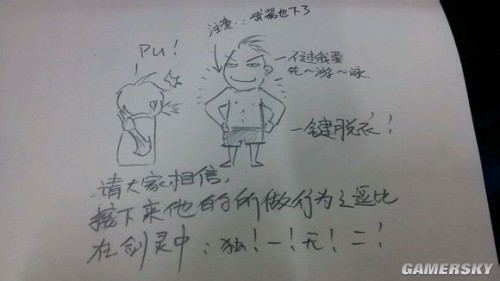 注意：武器也下了
PU！
一不过我要
先～游～泳
一键脱衣！
请大家相信，
接下来他的所做行为之逗比
在剑灵中：独！一！无！二！
GAMERSKY